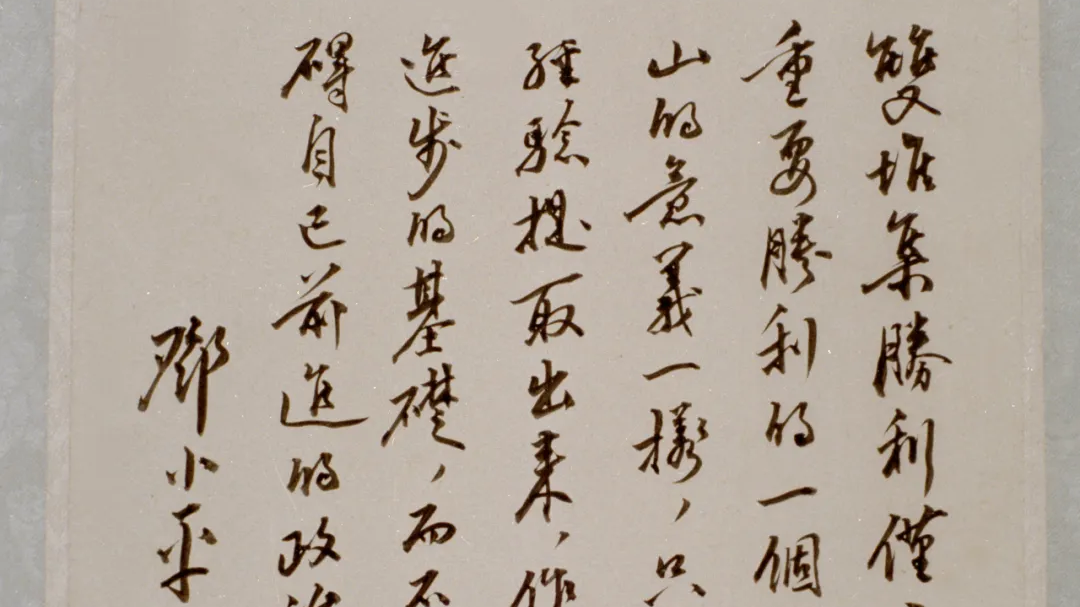 雙堆集勝利僅
重要勝利的一個
山的意義一樣，只
經驗提取出來，作
進步的基礎，而不
碍自己前進的政治
鄧小平